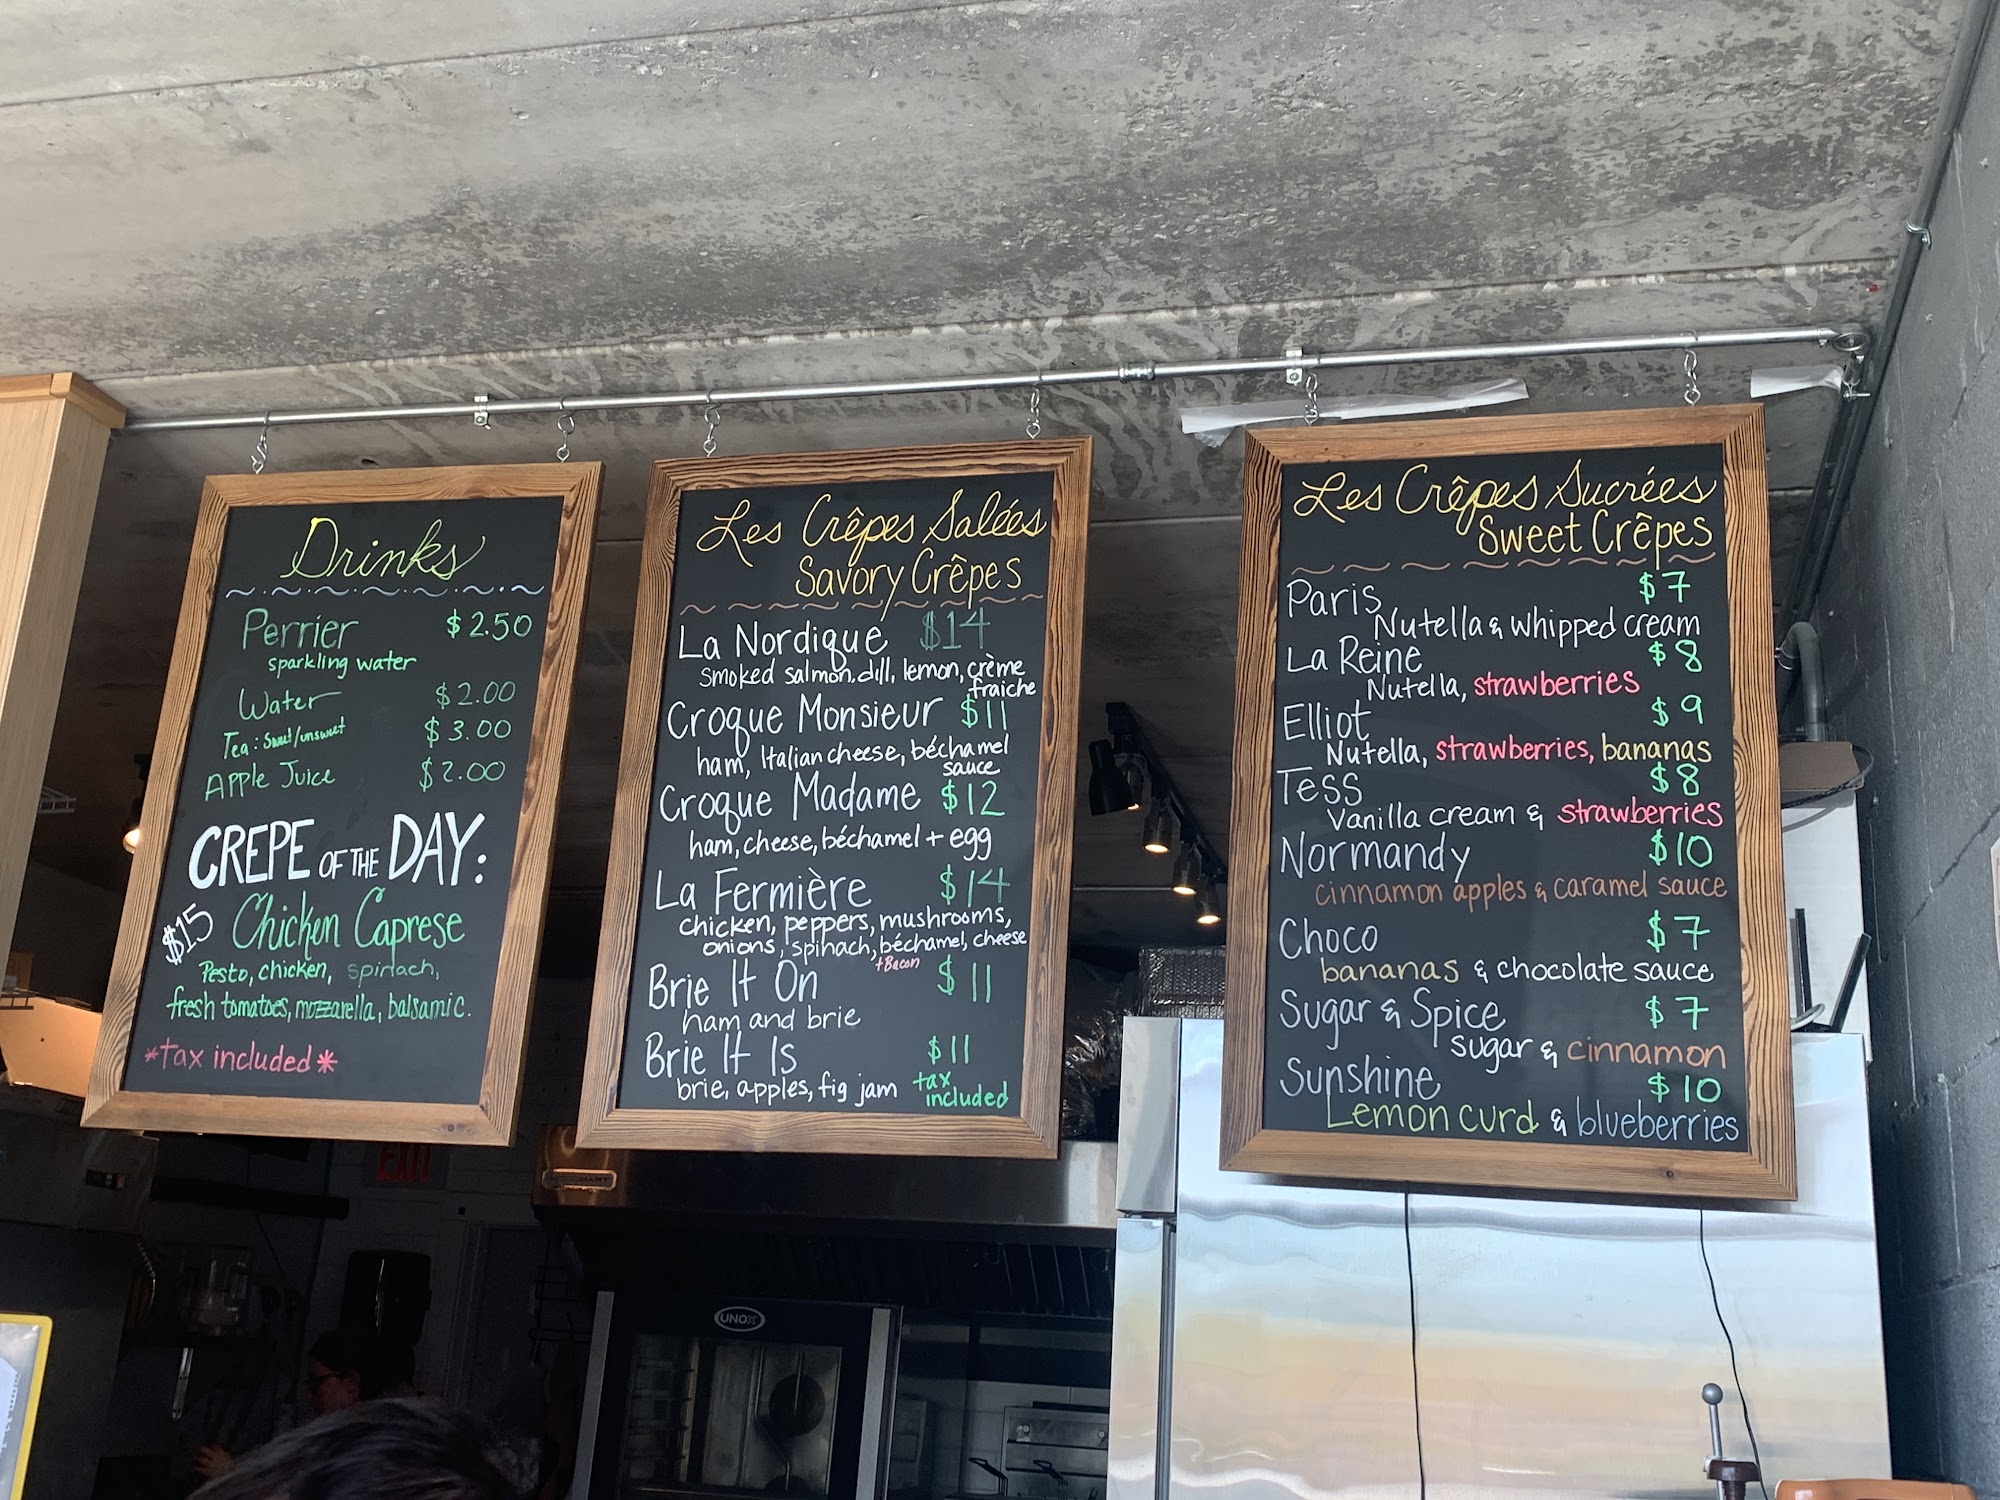 Drinks
Perrier $2.50
sparkling water
Water $2.00
Tea: Sweet/unsweet $3.00
Apple Juice $2.00
CREPE OF THE DAY:
$15 Chicken Caprese
Pesto, chicken, spinach,
fresh tomatoes, mozzarella, balsamic.
*tax included*
Les Crêpes Salées
Savory Crêpes
La Nordique $14
smoked salmon, dill, lemon, crème
fraiche
Croque Monsieur $11
ham, Italian cheese, béchamel
sauce
Croque Madame $12
ham, cheese, béchamel + egg
La Fermière $14
chicken, peppers, mushrooms,
onions, spinach, béchamel, cheese
+Bacon
Brie It On $11
ham and brie
Brie It Is $11
brie, apples, fig jam tax
included
Les Crêpes Sucrées
Sweet Crêpes
Paris $7
Nutella & whipped cream
La Reine $8
Nutella, strawberries
Elliot $9
Nutella, strawberries, bananas
Tess $8
Vanilla cream & strawberries
Normandy $10
cinnamon apples & caramel sauce
Choco $7
bananas & chocolate sauce
Sugar & Spice $7
sugar & cinnamon
Sunshine $10
Lemon curd & blueberries
EXIT
UNOX